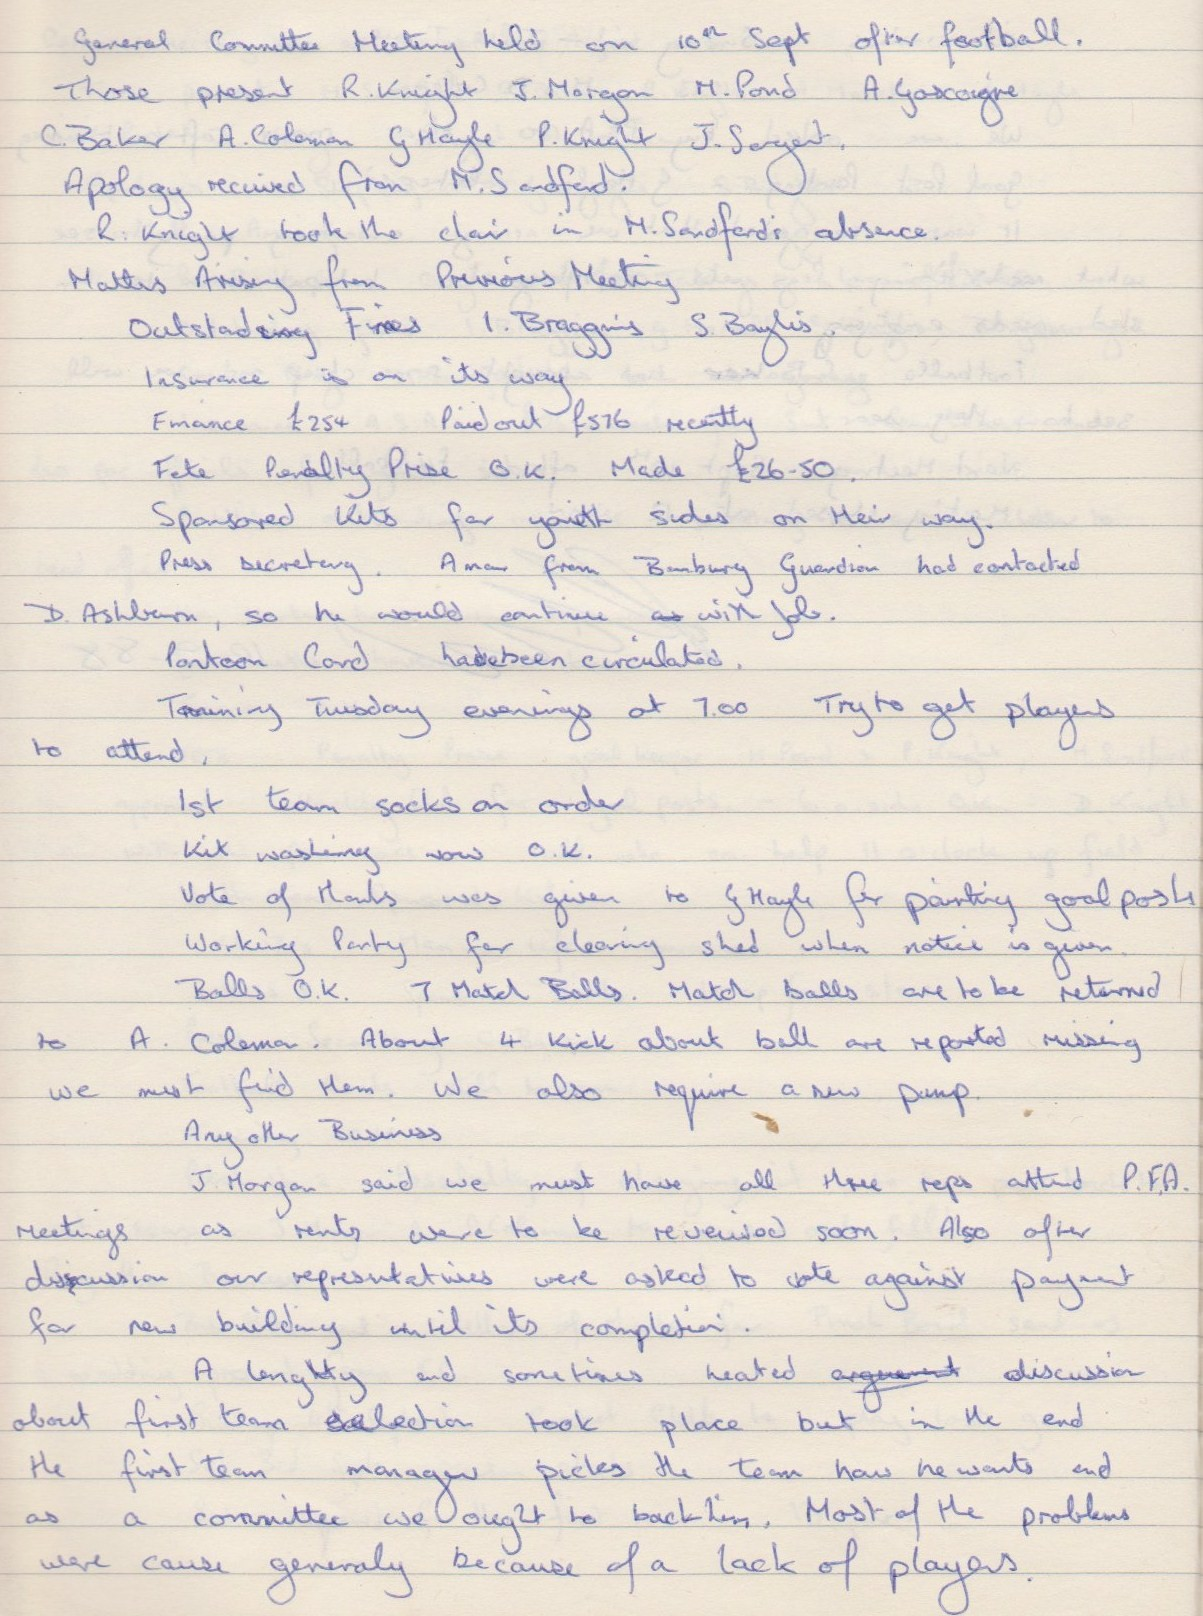 General Committee Meeting held on 10th Sept after football.
Those present R. Knight J. Morgan M. Pond A. Gascoigne
C. Baker A. Coleman G Hayle P. Knight J. Sargent.
Apology received from M. Sandford.
R. Knight took the chair in M. Sandford's absence.
Matters Arising from Previous Meeting
Outstading Fines I. Braggins S. Baylis.
Insurance is on its way
Finance £254 Paid out £576 recently
Fete Penalty Prise O.K. Made £26-50.
Sponsored Kits for youth sides on their way.
Press secretary. A man from Banbury Guardian had contacted
D. Ashburn, so he would continue as with job.
Pontoon Card had been circulated.
Training Tuesday evenings at 7.00 Try to get players
to attend.
1st team socks on order
Kit washing now O.K.
Vote of thanks was given to G Hayle for painting goal posts
Working Party for clearing shed when notice is given.
Balls O.K. 7 Match Balls. Match balls are to be returned
to A. Coleman. About 4 kick about ball are reported missing
we must find them. We also require a new pump.
Any other Business
J. Morgan said we must have all three reps attend P.F.A.
meetings as rents were to be reveiwed soon. Also after
discussion our representatives were asked to vote against payment
for new building until its completion.
A lenghty and sometimes heated argument discussion
about first team selection took place but in the end
the first team manager picks the team how he wants and
as a committee we ought to back him. Most of the problems
were cause generaly because of a lack of players.